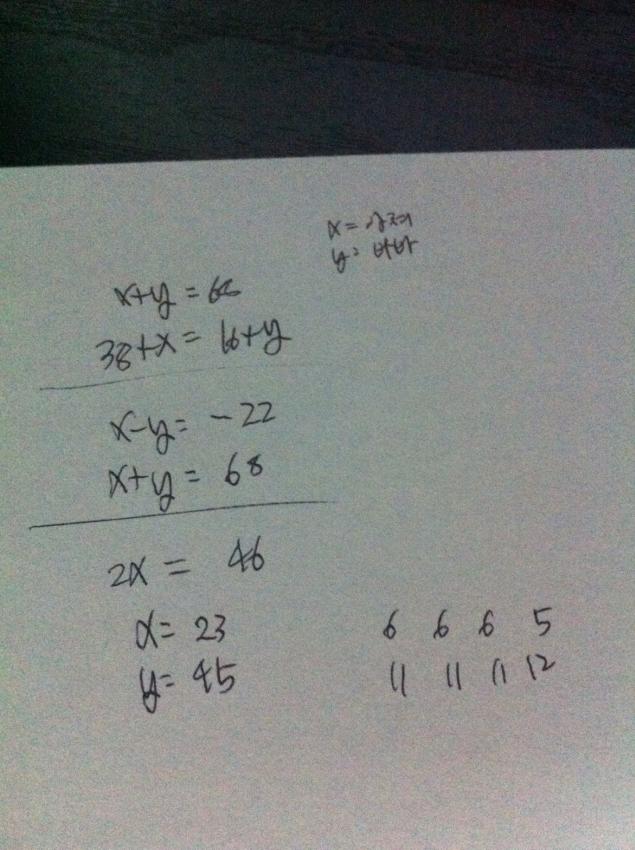 x = 감자
y = 바바
x+y = 68
38+x = 16+y
x-y = -22
x+y = 68
2x = 46
x = 23
y = 45
6 6 6 5
11 11 11 12